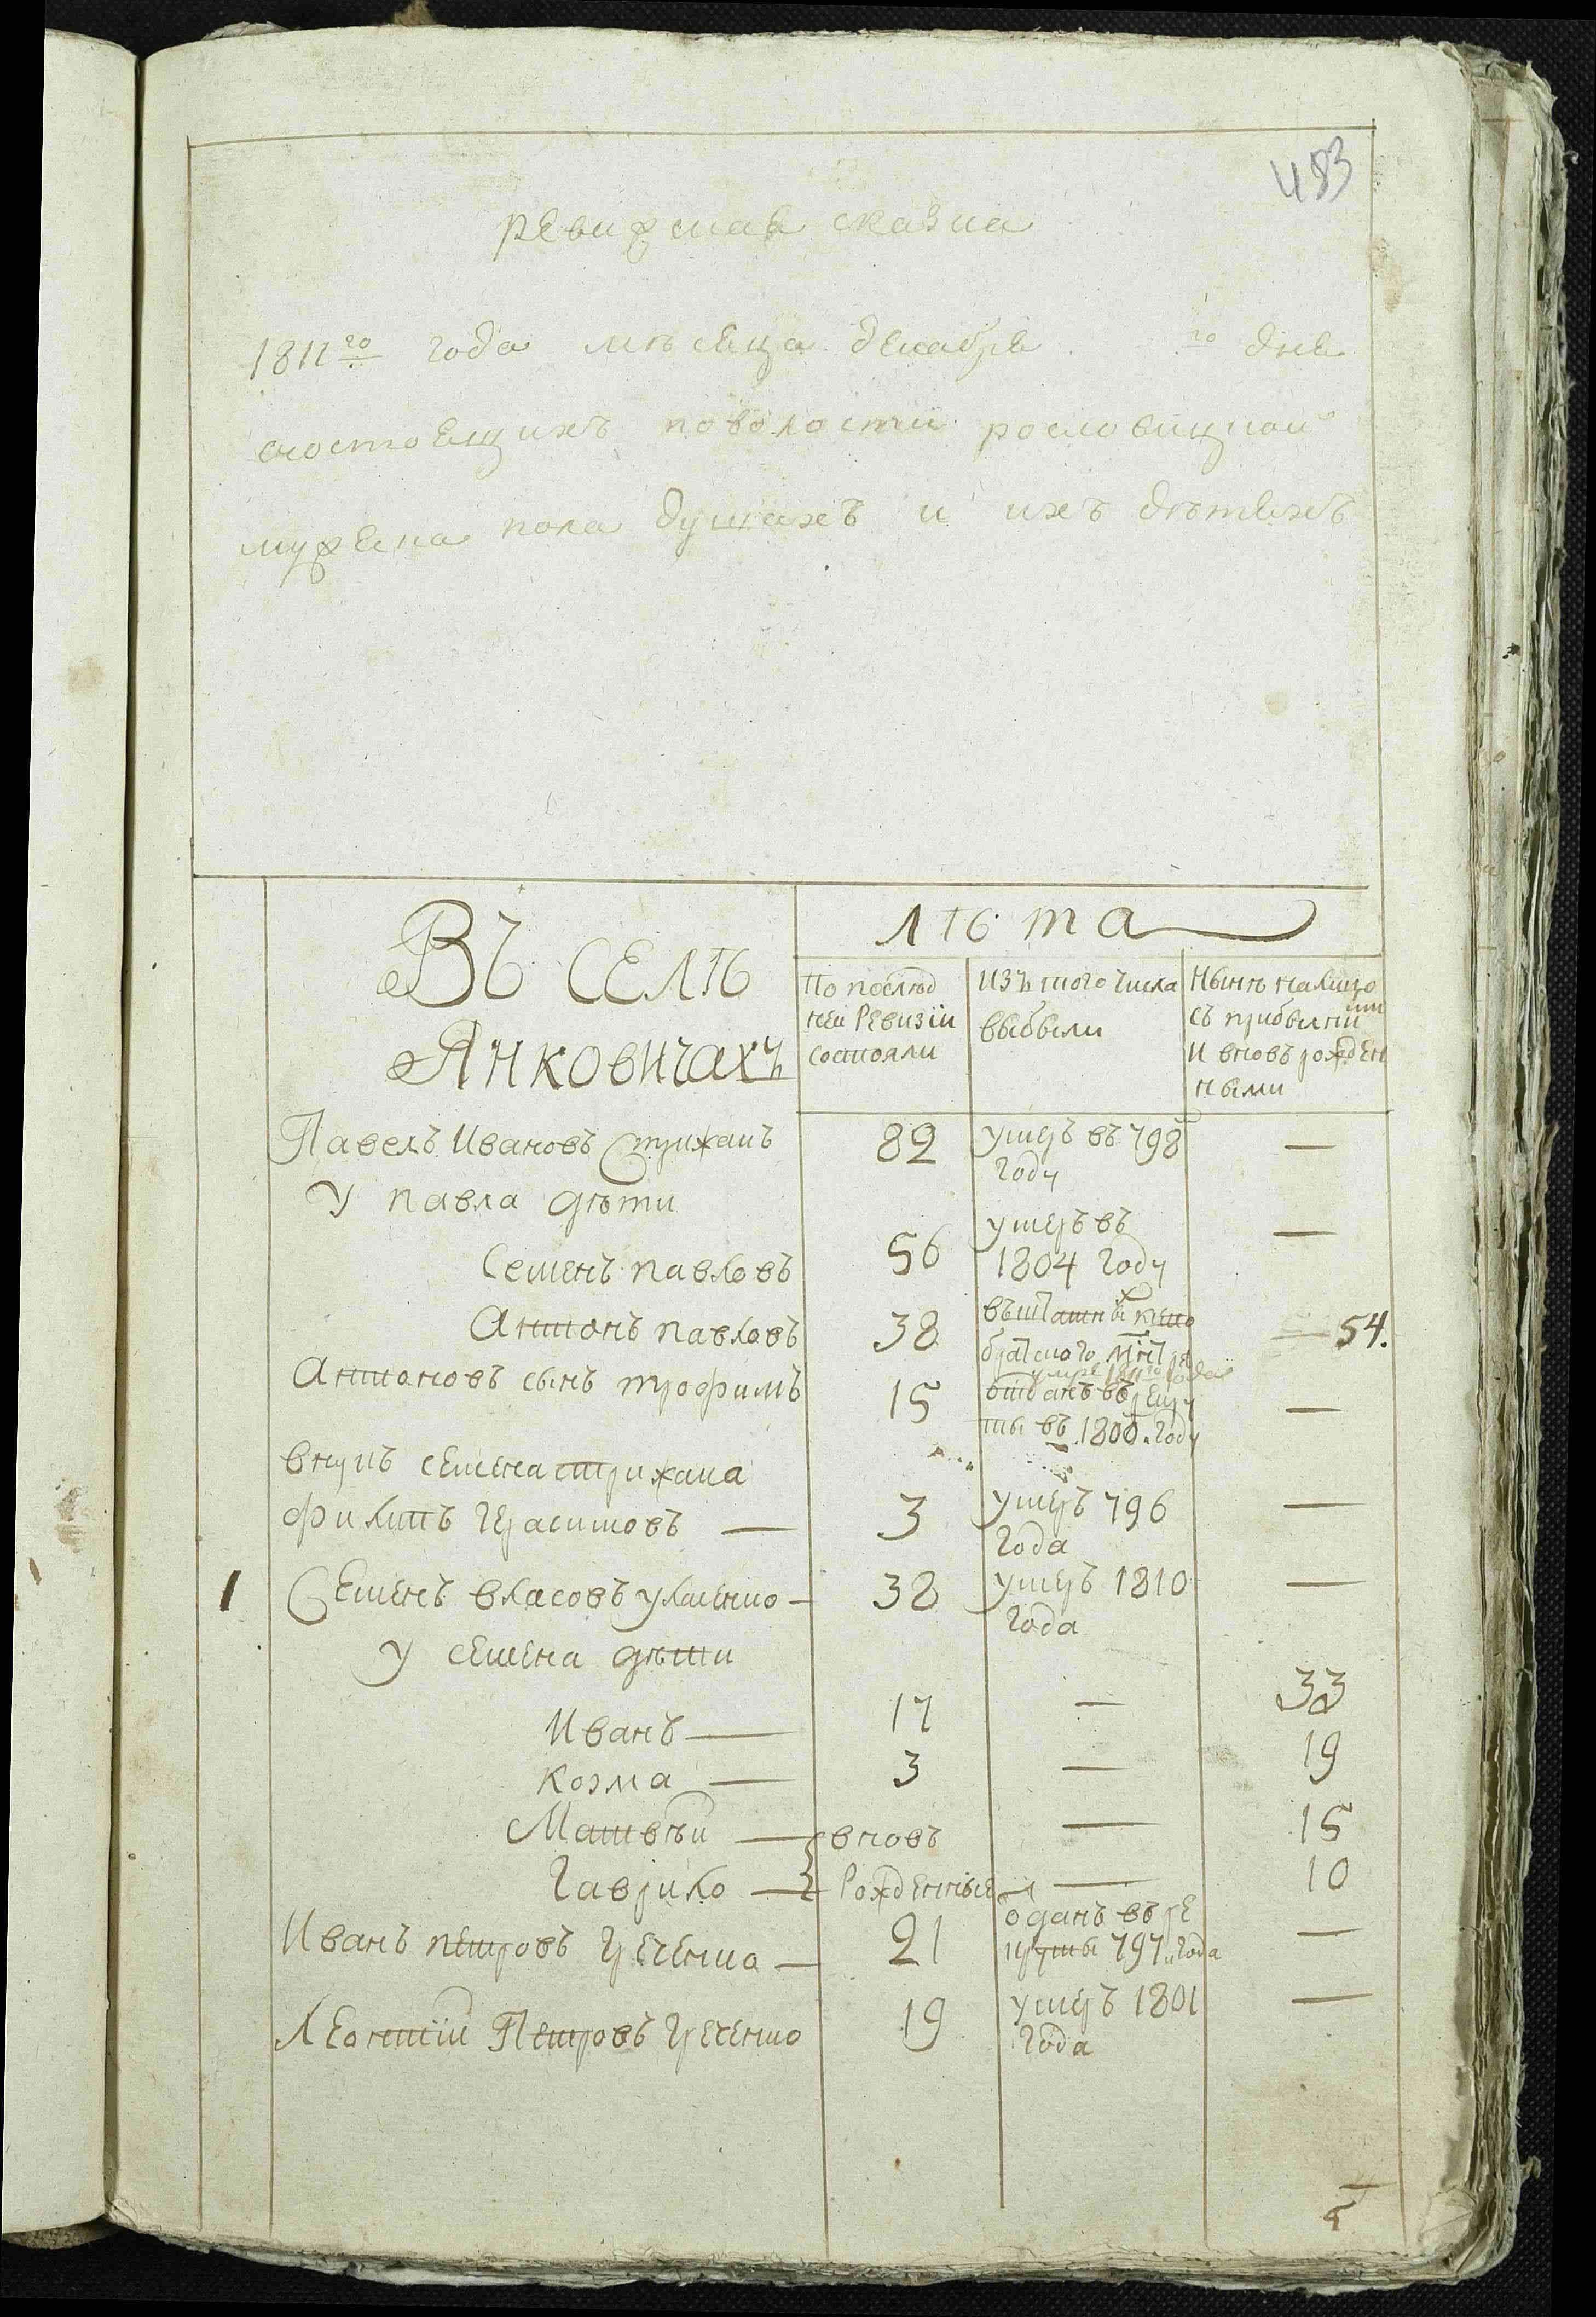 483
ревижская сказка
1811го года мѣсеца декабря го дня
состоещихъ поволости рословицкой
мужеска пола душахъ и ихъ дѣтяхъ
Въ селѣ
Янковичахъ
лѣта
По послѣд
ней Ревизіи
состояли
изъ того числа
выбыли
Нынѣ налицо
съ прибылними
И вновь рожден
ными
Павелъ Ивановъ Стрижакъ 82 умеръ въ 798 —
году
У павла дѣти
Семенъ павловъ 56 умеръ въ —
1804 году
Антонъ павловъ 38 54.
Антоновъ сынъ трофимъ 15 отданъ въ рекру —
ты въ 1800. году
внукъ семена стрижака
Филипъ Герасимовъ — 3 умеръ 796 —
года
1 Семенъ власовъ 38 умеръ 1810 —
года
У семена дѣти
Иванъ — 17 — 33
козма — 3 — 19
Матвѣй — вновь — 15
Гаврило — Рожденные — 10
Иванъ петровъ Греченка — 21 оданъ въ ре —
круты 797. года
Леонтій Петровъ Греченко 19 умеръ 1801 —
года